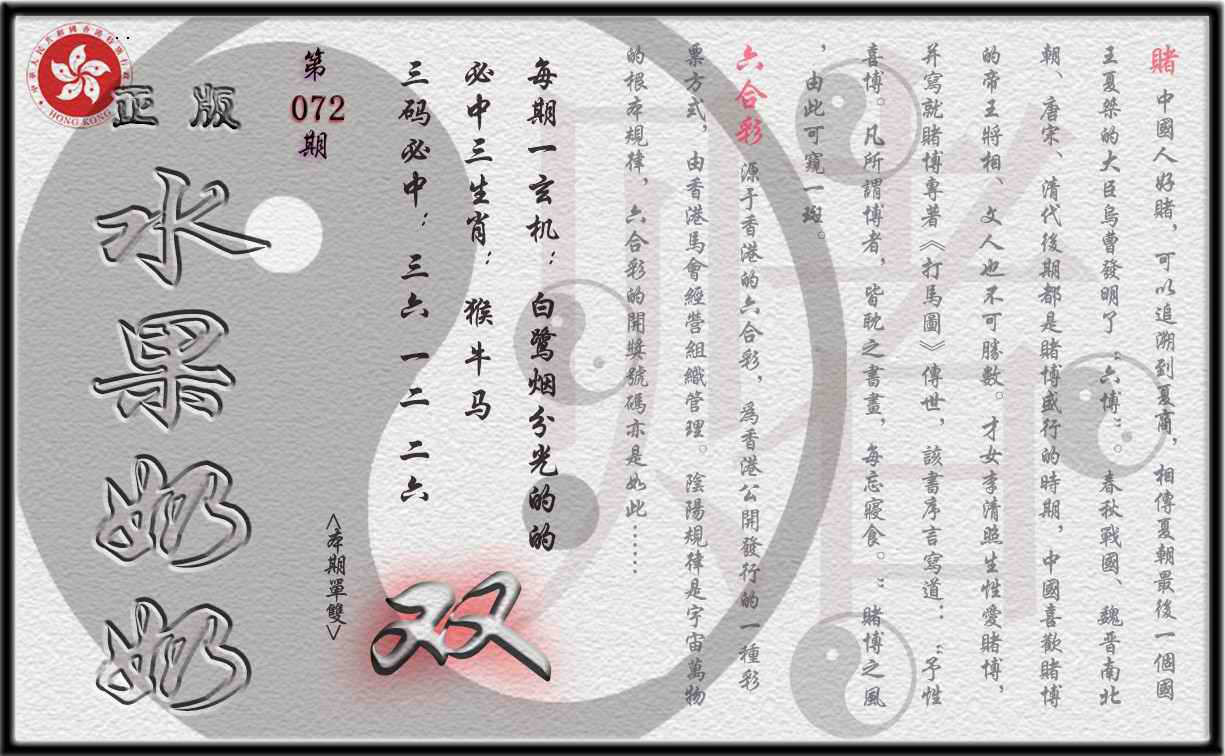 賭 中國人好賭，可以追溯到夏商，相傳夏朝最後一個國
王夏桀的大臣烏曹發明了“六博”。春秋戰國、魏晋南北
朝、唐宋、清代後期都是賭博盛行的時期，中國喜歡賭博
的帝王將相、文人也不可勝數。才女李清照生性愛賭博，
并寫就賭博專著《打馬圖》傳世，該書序言寫道：“予性
喜博。凡所謂博者，皆耽之書晝，每忘寢食。”賭博之風
，由此可窺一斑。
六合彩 源于香港的六合彩，爲香港公開發行的一種彩
票方式，由香港馬會經營組織管理。陰陽規律是宇宙萬物
的根本規律，六合彩的開獎號碼亦是如此……
每期一玄机：白鹭烟分光的的
必中三生肖：猴牛马
三码必中：三六 一二 二六
双
<本期單雙>
第
072
期
正版
水果奶奶
中華人民共和國香港特別行政區
HONG KONG